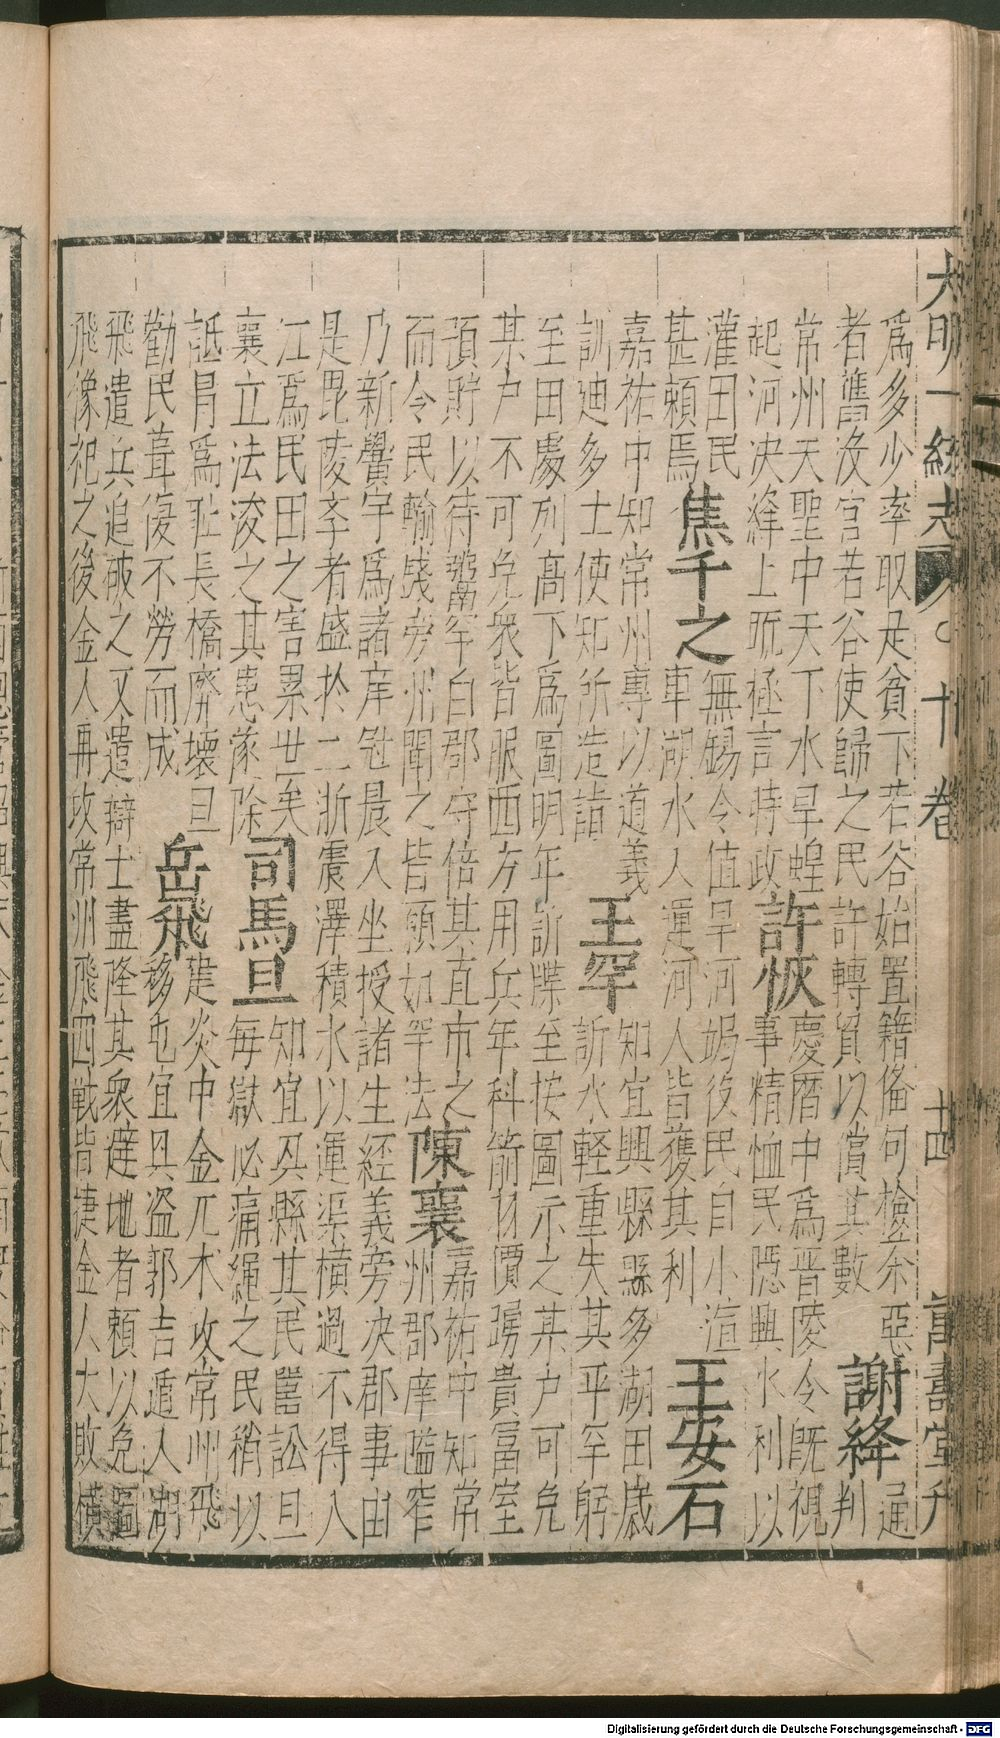 大明一統志 十卷 廿四 萬壽堂刋
爲多少率取足貧下若谷始置籍俻何檢余惡通
者舊没官若谷使歸之民許轉貿以償其數謝絳判
常州天聖中天下水旱蝗慶曆中爲晋陵令既視
起河决絳上䟽極言時政許恢事精恤民隠興水利以
灌田民無錫令值旱河涸役民自小渲
甚頼焉焦千之車湖水入運河人皆獲其利王安石
嘉祐中知常州專以道義知宜興縣縣多湖田歲
訓迪多士使知所造詣王罕訴水輕重失其平罕躬
至田處列髙下爲圖明年訴牒至按圖示之某户可免
某户不可免衆皆服西方用兵年科箭材價踴貴富室
預貯以待鬻罕白郡守倍其直市之嘉祐中知常
而令民輸錢旁州聞之皆願如罕法陳襄州郡庠隘窄
乃新黌宇爲諸庠冠晨入坐授諸生經義旁决郡事由
是毘陵李者盛於二浙震澤積水以運渠横過不得入
江爲民田之害累世矣知宜興縣其民嚚訟旦
襄立法浚之其患遂除司馬旦毎獄必痛繩之民稍以
詆冐爲耻長橋廢壞旦建炎中金兀术攻常州飛
勸民葺復不勞而成岳飛移屯宜興盗郭吉遁入湖
飛遣兵追破之又遣辯士盡降其衆避地者頼以免圖
飛像祀之後金人再攻常州飛四戰皆捷金人大敗横
Digitalisierung gefördert durch die Deutsche Forschungsgemeinschaft - DFG